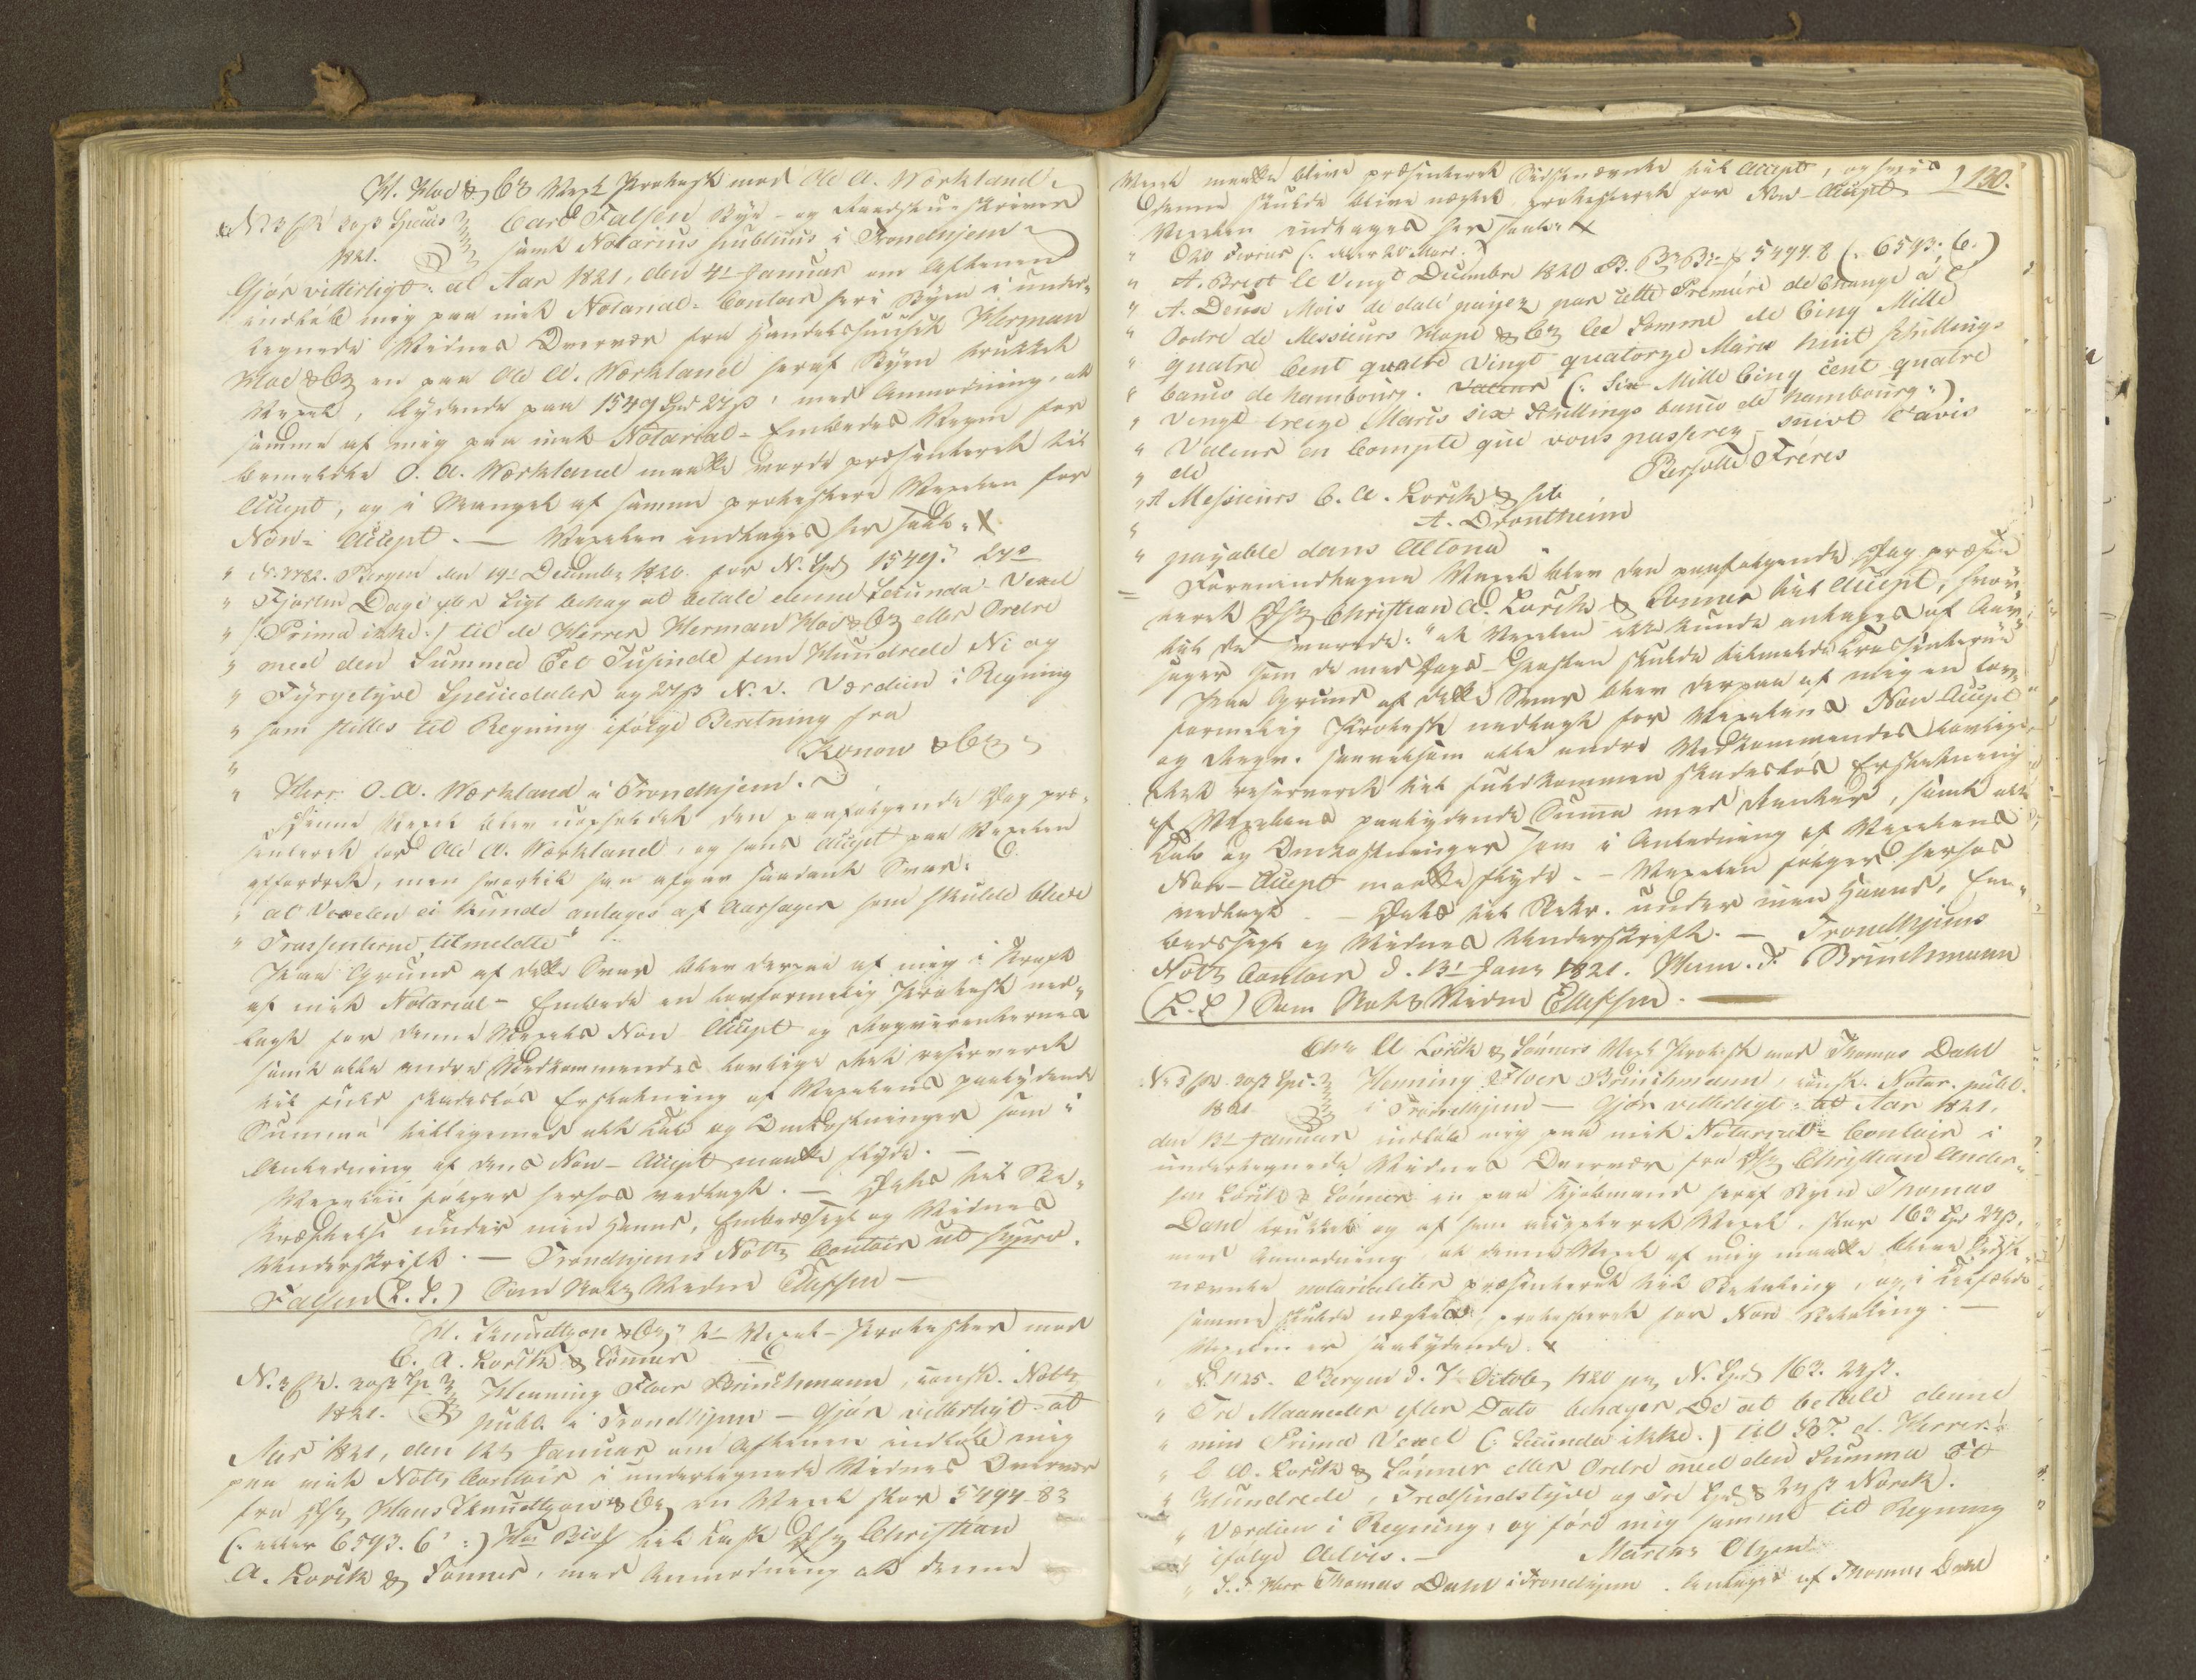 H. Kloed & Co Vexl Protest mod Ole A. Workland
No 3 20 ß Species Carl Falsen Bye- og Raadstueskriver
1821. samt Notarius publicus i Trondhjem
Gjør vitterligt: at Aar 1821, den 4de Januar om Aftenen
indløb mig paa mit Notarial-Contoir her i Byen i under-
tegnede Vidnes Overvær fra Handelshuuset Herman
& Co en paa Ole A. Workland heraf Byen trukket
Vexel, lydende paa 1549 Spd 27 ß, med Anmodning, at
samme af mig paa mit Notarial-Embedes Vegne for
bemeldte O. A. Workland maatte vorde præsenteret til
Accept, og i Mangel af samme protestere Vexelen for
Non-Accept. — Vexelen indtages her saal:
" Bergen den 19de Decembr 1820. for N. Spd 1549. 27 ß
" Fjorten Dage efter Sigt behag at betale denne Secunda Vexel
" (: Prima ikke :) til de Herrer Herman & Co eller Ordre
" med den Summa Eet Tusinde fem Hundrede Ni og
" Fyrgetyve Speciedaler og 27 ß N. V. Værdien i Regning
" som stilles til Regning ifølge Beretning fra
" Konow & Co
" Herr O. A. Workland i Trondhjem.
Denne Vexel blev uopholdet den paafølgende Dag præ-
senteret for Ole A. Workland, og hans Accept paa Vexelen
affordret, men hvortil han afgav saadant Svar:
" at Vexelen ei kunde antages af Aarsager som skulde blive
" Trassenterne tilmeldte"
Paa Grund af dette Svar blev derpaa af mig i Kraft
af mit Notarial-Embede en lovformelig Protest ned-
lagt for denne Vexels Non Accept og Reqvirenternes
samt alle andre Vedkommendes lovlige Ret reserveret
til fuld skadesløs Erstatning af Vexelens paalydende
Summa tilligemed alt Tab og Omkostninger som i
Anledning af dens Non-Accept maatte flyde. —
Vexelen følger herhos vedlagt. — Dets til Be-
kræftelse under min Haand, Embedssegl og Vidnes
Underskrift. — Trondhjems Notr Contoir ut supra.
Falsen (L. S.) Som Notr Vidne Ellefsen —
H. Knudtzon & Co 2de Vexel-Protester mod
C. A. Lorck & Sønner
No. 3 20 ß Sp Henning Floer Brinchmann, const. Notr
1821. publ. i Trondhjem — Gjør vitterligt: at
Aar 1821, den 12 Januar om Aftenen indløb mig
paa mit Notr Contoir i undertegnede Vidnes Overvær
fra Hans Knudtzon & Co en Vexel stor 5494. 8 ß
(: eller 6593. 6 :) til Last Christian
A. Lorck & Sønner, med Anmodning at denne
130.
Vexel maatte blive præsenteret Sidstnævnte til Accept, og hvis
denne skulde blive nægtet, protesteret for Non-Accept
Vexelen indtages her saal:
" A. Brest le Vingt Decembre 1820 B. 5494. 8 (: 6593. 6 :)
" A. Deux Mois de date payez par cette Premiére de Change á l'
" Ordre de Messieurs & Co la Somme de Cinq Mille
" quatre Cent quatre Vingt quatorze Marcs huit Schillings
" banco de hambourg. Valeur (: Six Mille Cinq cent quatre
" Vingt treize Marcs six Schillings banco de hambourg :)
" Valeur en Compte que vous passerez suivt l'avis
" de Bersolle Fréres
" A Messieurs C. A. Lorck &
" A. Drontheim
" payable dans Altona"
Foranindtagne Vexel blev den paafølgende Dag præsen-
teret Christian A. Lorck & Sønner til Accept, hvor-
til de svarede: "at Vexelen ikke kunde antages af Aar-
sager som de med Dags-Posten skulde tilmelde Trassenterne"
Paa Grund af dette Svar blev derpaa af mig en lov-
formelig Protest nedlagt for Vexelens Non-Accept
og Reqv. saavelsom alle andre Vedkommendes lovlige
Ret reserveret til fuldkommen skadesløs Erstatning
af Vexelens paalydende Summa med Renter, samt alt
Tab og Omkostninger som i Anledning af Vexelens
Non-Accept maatte flyde. — Vexelen følger herhos
vedlagt. — Dets til Bekr. under min Haand, Em-
bedssegl og Vidnes Underskrift. — Trondhjems
Notr Contoir d. 13de Janr 1821. Henn. F. Brinchmann
(L. S.) Som Notr Vidne Ellefsen.
Chr. A. Lorck & Sønners Vexl Protest mod Thomas Dahl
No 3 20 ß Spc. Henning Floer Brinchmann, const. Notar. publ.
1821. i Trondhjem — Gjør vitterligt: at Aar 1821,
den 13de Januar indløb mig paa mit Notarial-Contoir i
undertegnede Vidnes Overvær fra Christian Ander-
sen Lorck & Sønner en paa Kjøbmand heraf Byen Thomas
Dahl trukket og af ham accepteret Vexel, stor 163 Spd 24 ß,
med Anmodning at denne Vexel af mig maatte blive Sidst-
nævnte notarialiter præsenteret til Betaling, og i Tilfælde
samme skulde nægtes, protesteret for Non Betaling. —
Vexelen er saalydende:
" Bergen d. 7 Octobr 1820 N. Spd 163. 24 ß.
" Tre Maaneder efter Dato behager De at betale denne
" min Prima Vexel (: Secunda ikke :) til S. T. d. Herrer
" C. A. Lorck & Sønner eller Ordre med den Summa Et
" Hundrede, Tredsindstyve og Tre Spd & 24 ß Norsk.
" Værdien i Regning, og före mig samme til Regning
" ifølge Advis. — Olsen
" S. T. Herr Thomas Dahl i Trondhjem. Antaget af Thomas Dahl